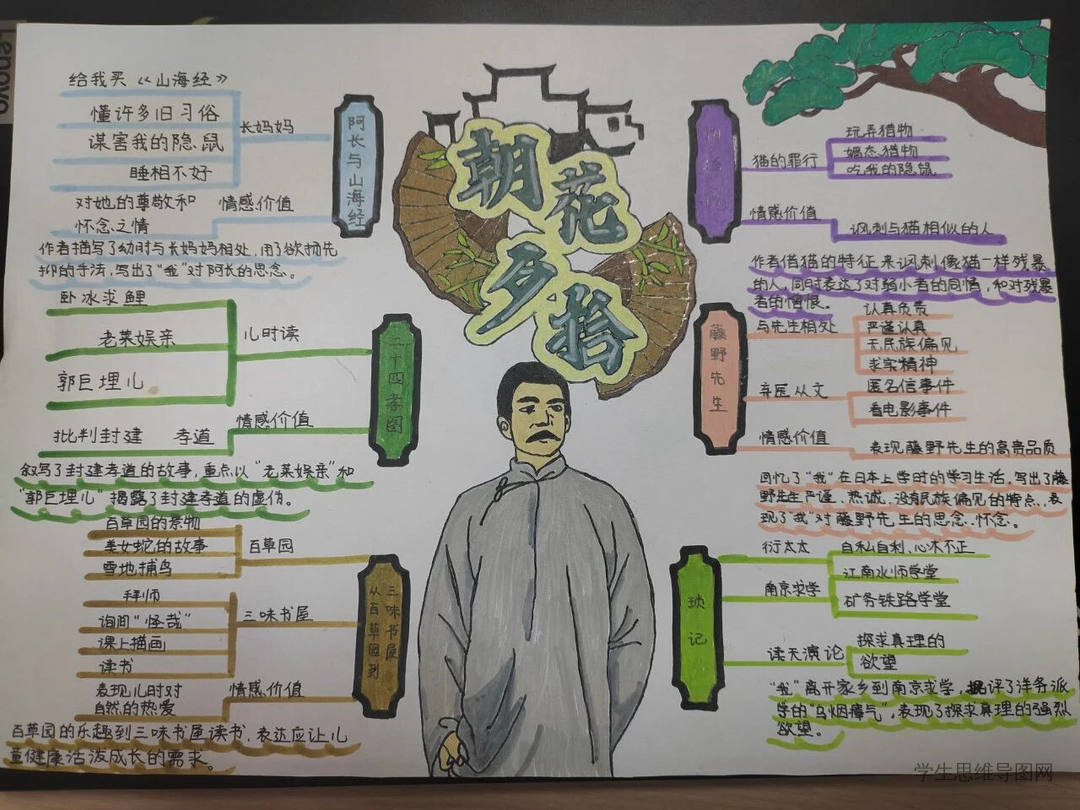 Lenovo
朝花夕拾
给我买《山海经》
懂许多旧习俗
谋害我的隐鼠
睡相不好
长妈妈
对她的尊敬和
怀念之情
情感价值
阿长与山海经
作者描写了幼时与长妈妈相处,用了欲扬先
抑的手法,写出了“我”对阿长的思念。
卧冰求鲤
老莱娱亲
郭巨埋儿
儿时读
批判封建 孝道
情感价值
二十四孝图
叙写了封建孝道的故事,重点以“老莱娱亲”和
“郭巨埋儿”揭露了封建孝道的虚伪。
百草园的景物
美女蛇的故事
雪地捕鸟
百草园
拜师
询问“怪哉”
课上描画
读书
三味书屋
表现儿时对
自然的热爱
情感价值
三味书屋
从百草园到
百草园的乐趣到三味书屋读书,表达应让儿
童健康活泼成长的需求。
猫的罪行
玩弄猎物
媚态猎物
吃我的隐鼠
情感价值
讽刺与猫相似的人
作者借猫的特征来讽刺像猫一样残暴
的人,同时表达了对弱小者的同情,和对残暴
者的憎恨。
藤野先生
与先生相处
认真负责
严谨认真
无民族偏见
求实精神
弃医从文
匿名信事件
看电影事件
情感价值
表现藤野先生的高贵品质
回忆了“我”在日本上学时的学习生活,写出了藤
野先生严谨、热诚、没有民族偏见的特点,表
现了“我”对藤野先生的思念、怀念。
琐记
衍太太
自私自利、心术不正
南京求学
江南水师学堂
矿务铁路学堂
读天演论
探求真理的
欲望
“我”离开家乡到南京求学,批评了洋务派
学的“乌烟瘴气”,表现了探求真理的强烈
欲望。
学生思维导图网